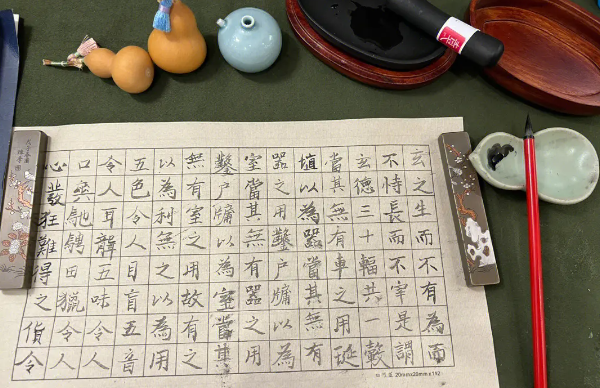 玄之生而不有為而
不恃長而不宰是謂
玄德三十輻共一轂
當其無有車之用埏
埴以為器當其無有
器之用鑿户牖以為
室當其無有器之用
鑿户牖以為室當其
無有室之用故有之
以為利無之以為用
五色令人目盲五音
令人耳聾五味令人
口爽馳騁田獵令人
心發狂難得之貨令
20mm×20mm×112